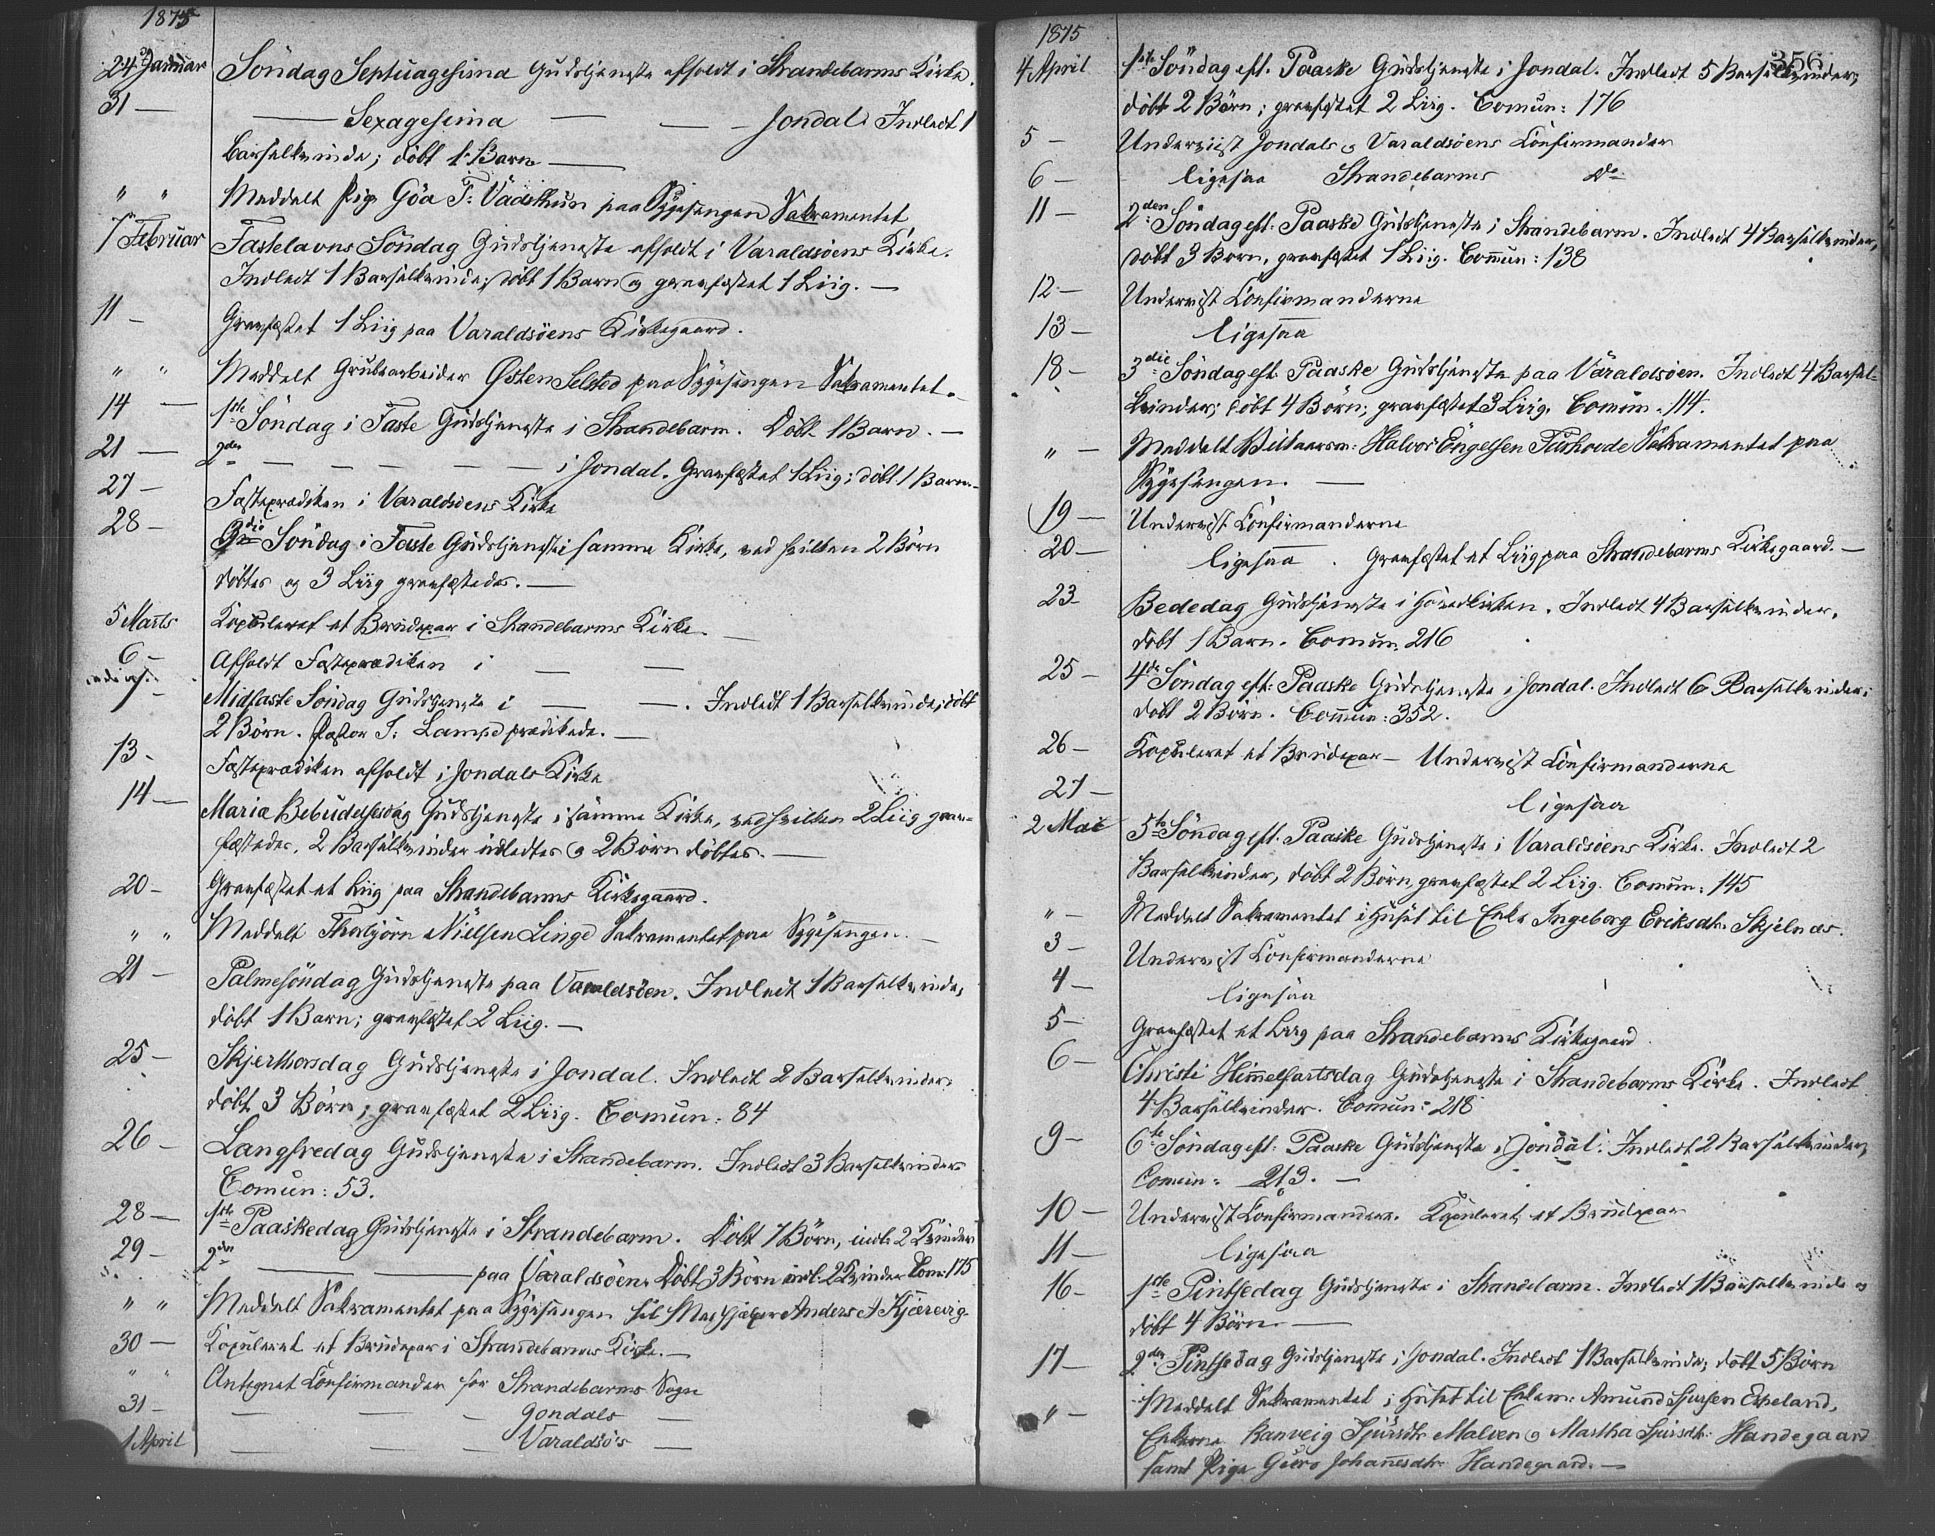 1875
24 Januar Söndag Septuagesima Gudstjeneste afholdt i Strandebarms Kirke.
31 — — Sexagesima — — Jondal. Indledt 1
Barselkvinde; döbt 1 Barn —
" " Meddelt Pige Göa T. Vadsthun paa Sygesengen Sakramentet
7 Februar Fastelavns Söndag Gudstjeneste afholdt i Varaldsöens Kirke.
Indledt 1 Barselkvinde; döbt 1 Barn og gravfæstet 1 Liig. —
11 — Gravfæstet 1 Liig paa Varaldsöens Kirkegaard.
" " Meddelt Grubearbeider Østen Selsted paa Sygesengen Sakramentet. —
14 — 1ste Söndag i Faste Gudstjeneste i Strandebarm. Döbt 1 Barn. —
21 — 2den — — — — — i Jondal. Gravfæstet 1 Liig; döbt 1 Barn. —
27 — Fasteprædiken i Varaldsöens Kirke
28 — 3die Söndag i Faste Gudstjeneste i samme Kirke, ved hvilken 2 Börn
döbtes og 3 Liig gravfæstedes. —
5 Marts Kopuleret et Brudepar i Strandebarms Kirke. —
6 — Afholdt Fasteprædiken i — —
7 — Midfaste Söndag Gudstjeneste i — —. Indledt 1 Barselkvinde; döbt
2 Börn. Pastor J. Lampe prædikede. —
13 — Fasteprædiken afholdt i Jondals Kirke
14 — Maria Bebudelsesdag Gudstjeneste i samme Kirke, ved hvilken 2 Liig grav-
fæstedes, 2 Barselkvinder indledtes og 2 Börn döbtes. —
20 — Gravfæstet et Liig paa Strandebarms Kirkegaard.
" " Meddelt Thorbjörn Nielsen Linge Sakramentet paa Sygesengen. —
21 — Palmesöndag Gudstjeneste paa Varaldsöen. Indledt 1 Barselkvinde,
döbt 1 Barn; gravfæstet 2 Liig. —
25 — Skjerthorsdag Gudstjeneste i Jondal. Indledt 2 Barselkvinder,
döbt 3 Börn; gravfæstet 2 Liig. Comun: 84
26 — Langfredag Gudstjeneste i Strandebarm. Indledt 3 Barselkvinder
Comun: 53.
28 — 1ste Paaskedag Gudstjeneste i Strandebarm. Döbt 7 Börn, indl: 2 Kvinder
29 — 2den — — paa Varaldsöen. Döbt 3 Börn indl: 2 Kvinder Com: 175
" " Meddelt Sakramentet paa Sygesengen til Medhjælper Anders A Kjærevig
30 — Kopuleret et Brudepar i Strandebarms Kirke. —
" " Antegnet Confirmander for Strandebarms Sogn
31 — — — — Jondals —
1 April — — — Varaldsö's —
356
1875
4 April 1ste Söndag eft. Paaske Gudstjeneste i Jondal. Indledt 5 Barselkvinder;
döbt 2 Börn; gravfæstet 2 Liig. Comun: 176
5 — Underviist Jondals og Varaldsöens Confirmander
6 — ligesaa Strandebarms Do
11 — 2den Söndag eft: Paaske Gudstjeneste i Strandebarm. Indledt 4 Barselkvinder,
döbt 3 Born, gravfæstet 1 Liig. Comun: 138
12 — Undervist Confirmanderne
13 — ligesaa
18 — 3die Söndag eft. Paaske Gudstjeneste paa Varaldsöen. Indledt 4 Barsel-
kvinder; döbt 4 Börn; gravfæstet 3 Liig. Comun. 114.
" — Meddelt Halvor Engelsen Sakramentet paa
Sygesengen. —
19 — Undervist Confirmanderne
20 — ligesaa. Gravfæstet et Liig paa Strandebarms Kirkegaard. —
23 — Bededag Gudstjeneste i Hovedkirken. Indledt 4 Barselkvinder,
döbt 1 Barn. Comun. 216
25 — 4de Söndag eft: Paaske Gudstjeneste i Jondal. Indledt 6 Barselkvinder;
döbt 2 Börn. Comun: 352.
26 — Kopuleret et Brudepar — Undervist Confirmanderne
27 — ligesaa
2 Mai 5te Söndag eft. Paaske Gudstjeneste i Varaldsöens Kirke. Indledt 2
Barselkvinder, döbt 2 Börn, gravfæstet 2 Liig. Comun: 145
" — Meddelt Sakramentet i Huset til Enke Ingeborg Eriksdtr. Skjelnæs.
3 — Undervist Confirmanderne
4 — ligesaa
5 — Gravfæstet et Liig paa Strandebarms Kirkegaard
6 — Christi Himmelfartsdag Gudstjeneste i Strandebarms Kirke. Indledt
4 Barselkvinder. Comun: 218
9 — 6te Söndag eft: Paaske Gudstjeneste i Jondal. Indledt 2 Barselkvinder,
Comun: 213. —
10 — Undervist Confirmander. Kopuleret et Brudepar
11 — ligesaa
16 — 1ste Pintsedag Gudstjeneste i Strandebarm. Indledt 1 Barselkvinde og
döbt 4 Börn. —
17 — 2den Pintsedag Gudstjeneste i Jondal. Indledt 1 Barselkvinde; döbt 5 Börn
" — Meddelt Sakramentet i Huset til Enkem: Amund Espeland,
Enkerne Ranveig Sjursdtr Malven og Martha Sjursdtr. Handegaard
samt Pige Guro Johannesdtr Handegaard. —